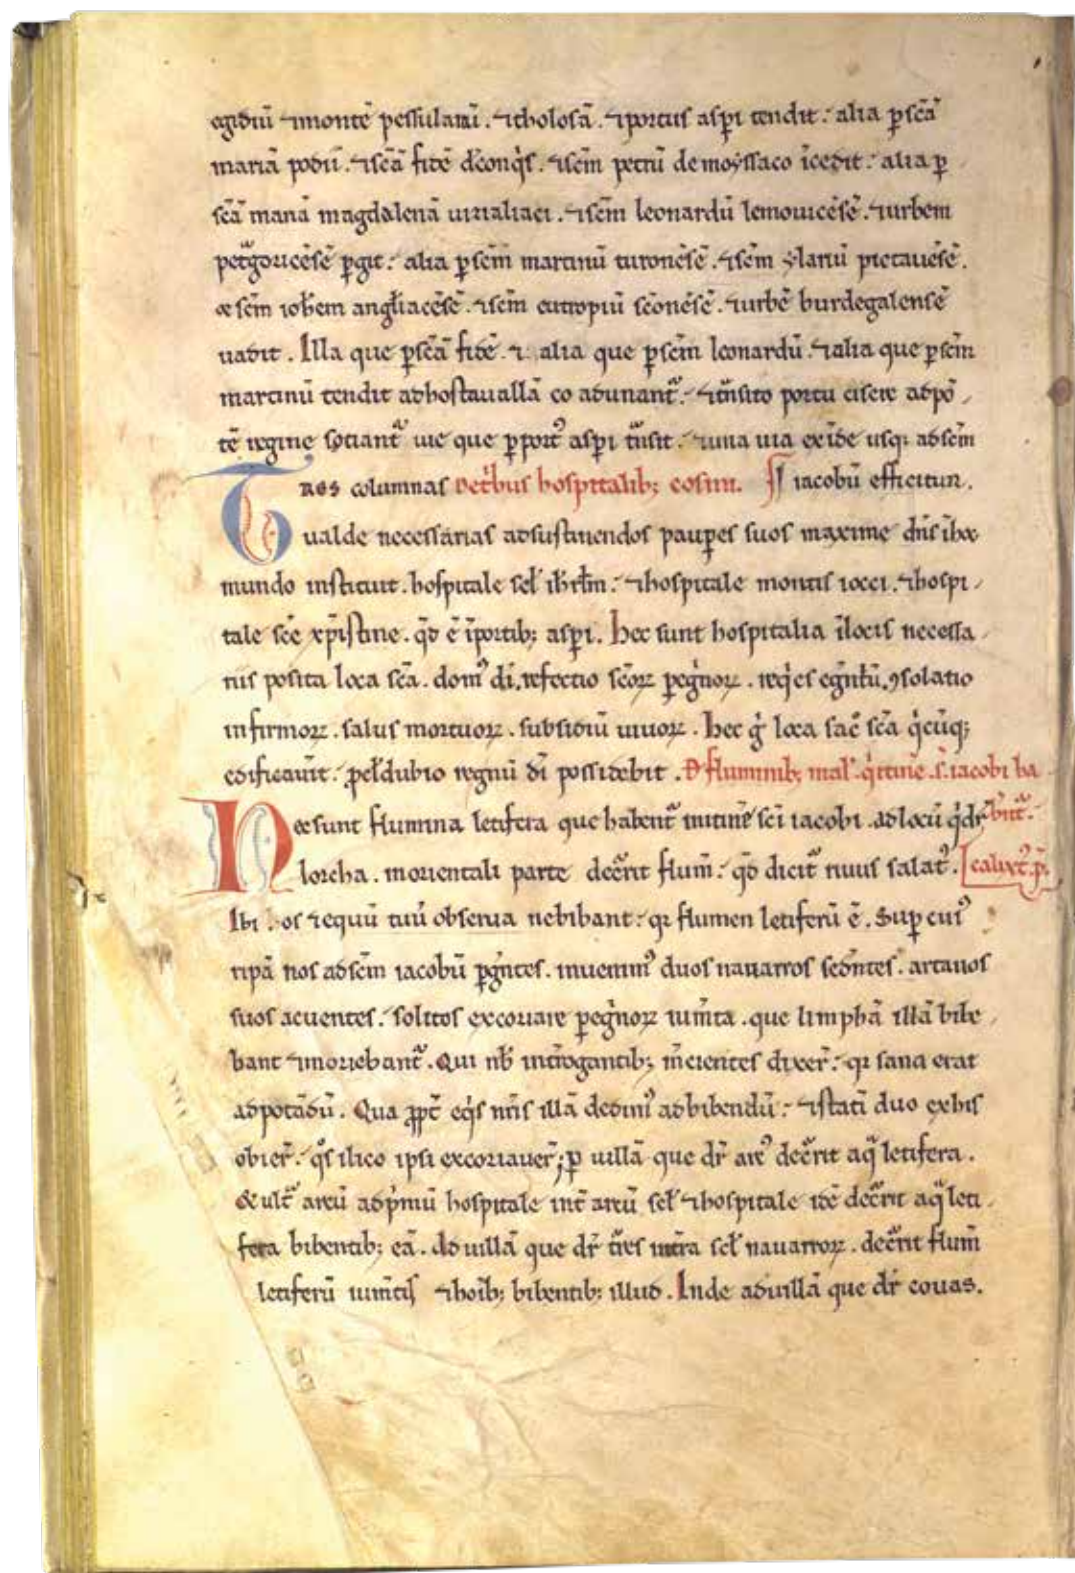 egidiũ ⁊montẽ pessulanũ. ⁊tholosã. ⁊portus aspi tendit. alia p scã
mariã podii. ⁊scã fidẽ deconq̇s. ⁊scm petrũ de moyssaco ĩcedit. alia p
scã mariã magdalenã uiziliaci. ⁊scm leonardũ lemouicẽsẽ. ⁊urbem
petᵃgoricẽsẽ pgit. alia p scm̃ martinũ turonẽsẽ. ⁊scm ylariũ pictauẽsẽ.
& scm ioh̃em angliacẽsẽ. ⁊scm eutropiũ sc̃onẽsẽ. ⁊urbẽ burdegalensẽ
uadit. Illa que p scã fidẽ. ⁊ alia que p scm̃ leonardũ. ⁊alia que p scm̃
martinũ tendit adhostauallã co adunantᵃ. ⁊tᵃnsito portu cisere adpõ
tẽ regine sotiantᵃ uie que p portꝰ aspi tᵃnsit. ⁊una uia exĩde usq; adscm̃
Tres columnas Detᵇus hospitalib; eosm. iacobũ efficitur.
ualde necessarias adsustinendos pauꝑes suos maxime dñs ĩhoc
mundo instituit. hospitale scł ih̃rłm. ⁊hospitale montis iocci. ⁊hospi
tale scẽ xp̃istine. qð ẽ ĩportib; aspi. Hec sunt hospitalia ĩlocis necessa
riis posita loca scã. domꝰ dĩ. refectio scõꝝ peg̃noꝝ. req̇es eg̃ntiũ. ꝯsolatio
infirmoꝝ. salus mortuoꝝ. subsidiũ uiuoꝝ. Hec g̃ loca sac̃ scã q̇cũq;
edificauẽit. p̃culdubio regnũ dĩ possidebit. D̃ fluminib; mał. q̇itinẽ. s̃. iacobi ha
Hecsunt flumina letifera que habentᵃ initinẽ scĩ iacobi. adlocũ q̇dr̃ bñtᵃ.
lorcha. inorientali parte decᵃrit flum̃. qð dicitᵃ riuus salatꝰ. calixtꝰ. p̃p.
Ibi os ⁊equũ tuũ obserua nebibant. qꝛ flumen letiferũ ẽ. Sup cuiꝰ
ripã nos adscm̃ iacobũ pg̃ntes. inuenimꝰ duos nauarros sedẽntes. artauos
suos acuentes. solitos excoriare peg̃noꝝ ium̃ta. que limphã illã bibe
bant ⁊moriebantᵃ. Qui nb̃ intẽrogantib; m̃cientes dixer̃. qꝛ sana erat
adpotãdũ. Qua p̱pt̃ eq̇s nr̃is illã dedimꝰ adbibendũ. ⁊statĩ duo exhis
obier̃. q̊s ilico ipsi excoriauer̃; p uillã que dr̃ arcꝰ decᵃrit aq̃ letifera.
& ultᵃ arcũ adp̃mũ hospitale int̃ arcũ scł ⁊hospitale idẽ decᵃrit aq̃ leti
fera bibentib; eã. Ad uillã que dr̃ tr̃es intra scł nauarroꝝ. decᵃrit flum̃
letiferũ ium̃tis ⁊hoĩb; bibentib; illud. Inde aduillã que dr̃ couas.